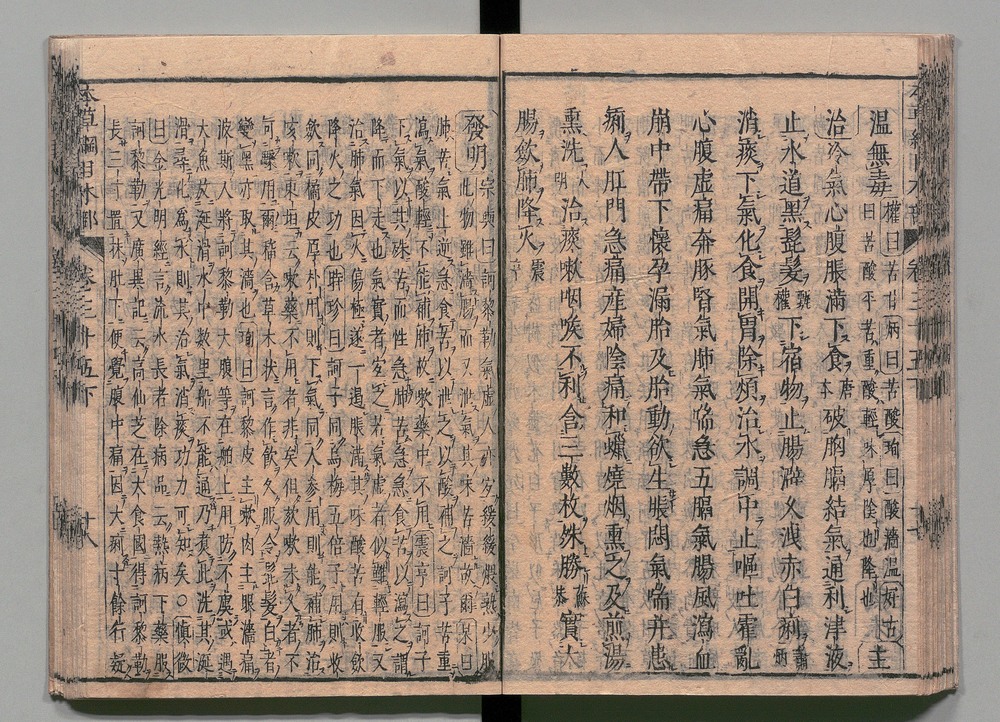 溫無毒權曰苦甘炳曰苦酸珣曰酸濇溫好古曰苦酸平苦重酸輕味厚陰也降也主
治冷氣心腹脹滿下食唐本破胸膈結氣通利津液
止水道黑髭髮甄權下宿物止腸澼久洩赤白痢蕭炳
消痰下氣化食開胃除煩治水調中止嘔吐霍亂
心腹虛痛奔豚腎氣肺氣喘急五膈氣腸風瀉血
崩中帶下懷孕漏胎及胎動欲生脹悶氣喘并患
痢人肛門急痛産婦陰痛和蠟燒烟熏之及煎湯
熏洗大明治痰嗽咽喉不利含三數枚殊勝蘇恭實大
腸歛肺降火震亨
發明宗奭曰訶黎勒氣虛人亦宜緩緩煨熟少服
此物雖濇腸而又泄氣其味苦濇故爾杲曰
肺苦氣上逆急食苦以泄之以酸補之訶子苦重
瀉氣酸輕不能補肺故嗽藥中不用震亨曰訶子
下氣以其味苦而性急肺苦急急食苦以瀉之謂
降而下走也氣實者宜之若氣虛者似難輕服又
治肺氣因火傷極遂鬱遏脹滿其味酸苦有收歛
降火之功也時珍曰訶子同烏梅五倍子用則收
歛同橘皮厚朴用則下氣同人參用則能補肺治
咳嗽東垣言嗽藥不用者非矣但欬嗽未久者不
可驟用爾嵇含草木狀言作飲久服令髭髮白者
變黑亦取其濇也珣曰訶黎皮主嗽肉主眼濇痛
波斯人將訶黎勒大腹等在舶上用防不虞或遇
大魚放涎滑水中數里船不能通乃煮此洗其涎
滑尋化爲水則其治氣消痰功力可知矣○愼微
曰金光明經言流水長者除病品云熱病下藥服
訶黎勒又廣異記云高仙芝在大食國得訶黎勒
長三寸置抹肚下便覺腹中痛因大利十餘行疑
本草綱目木部
卷三十五下
十八